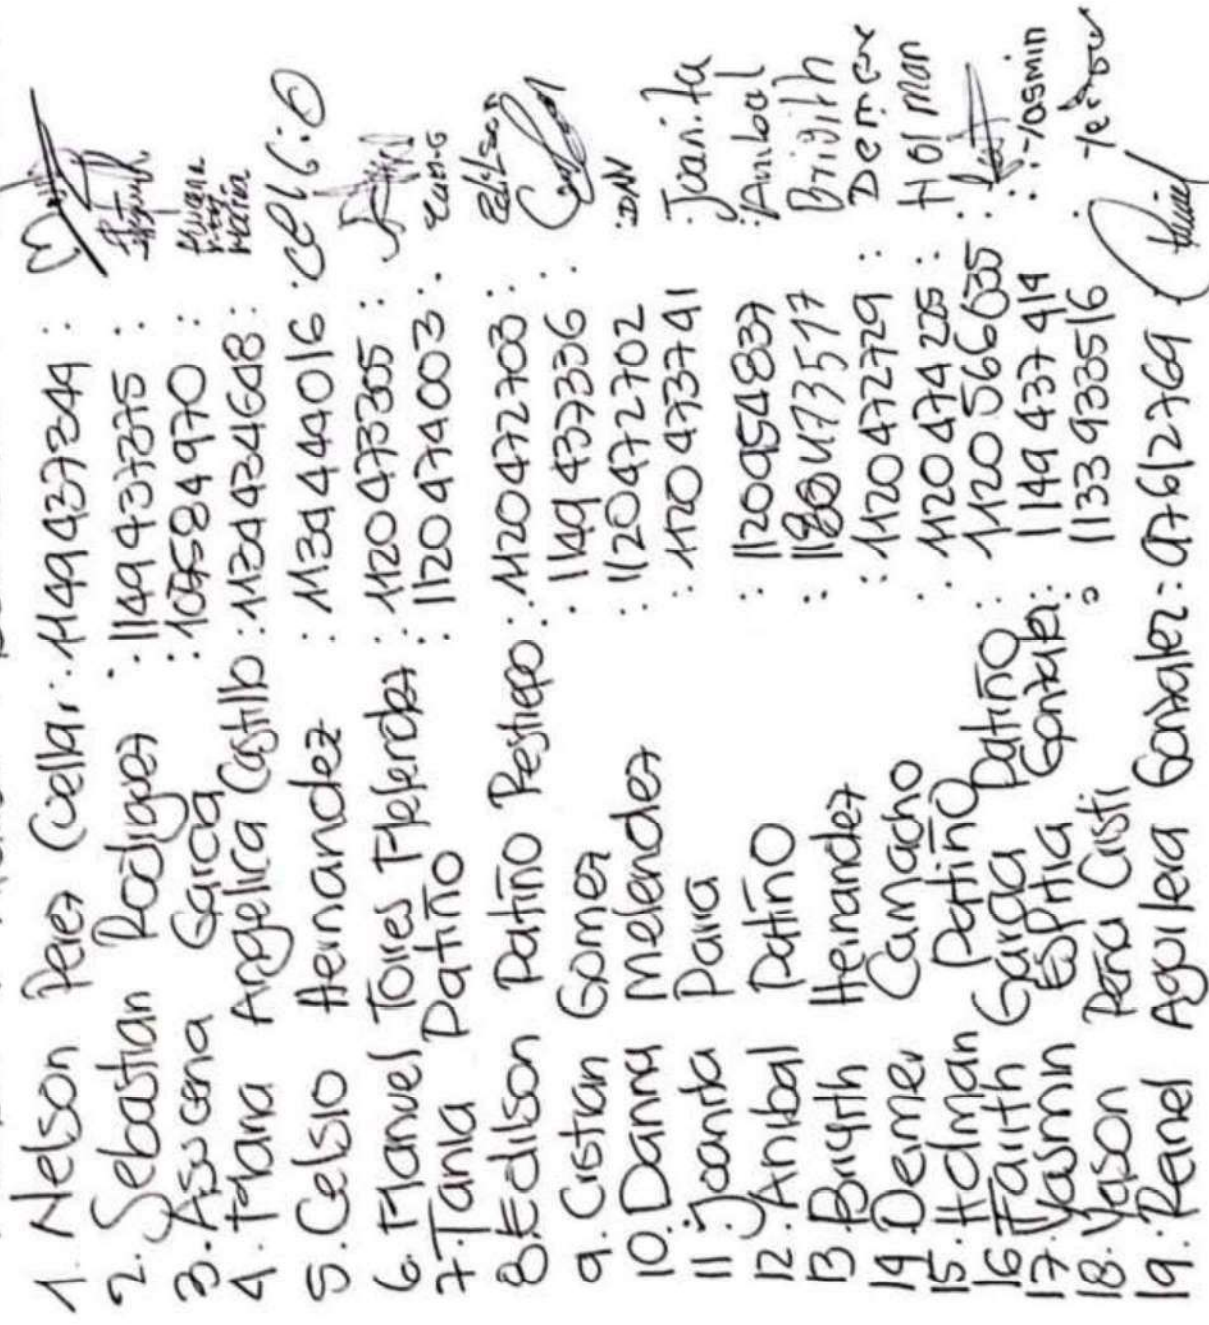 1. Nelson Perez Cuellar: 1149437344:
2. Sebastian Rodriguez: 1149437375:
3. Assucena Garcia: :
4. Maria Angelica Castillo: 1134434608:
5. Celsio Hernandez: 1134444016: Celsio
6. Manuel Torres Melendez: 1120473305:
7. Tania Patiño: 1120474003: Tania
8. Edilson Patiño Restrepo: 1120472703: Edilson
9. Cristian Gomez: 1149437336:
10. Danna Melendez: 1120472702: DNN
11. Joanita Parra: 1120473741: Joanita
12. Anibal Patiño: 1120954837: Anibal
13. Brigith Hernandez: Brigith
14. Deimer Camacho: 1120472729: Demer
15. Holman Patiño: 1120474225: Holman
16. Fairith Garga Patiño: 1120566635:
17. Yasmin Espitia Gonzalez: 1149437414: Yasmin
18. Yason Peña Cristi: 1133933516:
19. Reinel Aguilera Gonzalez: 97612769: